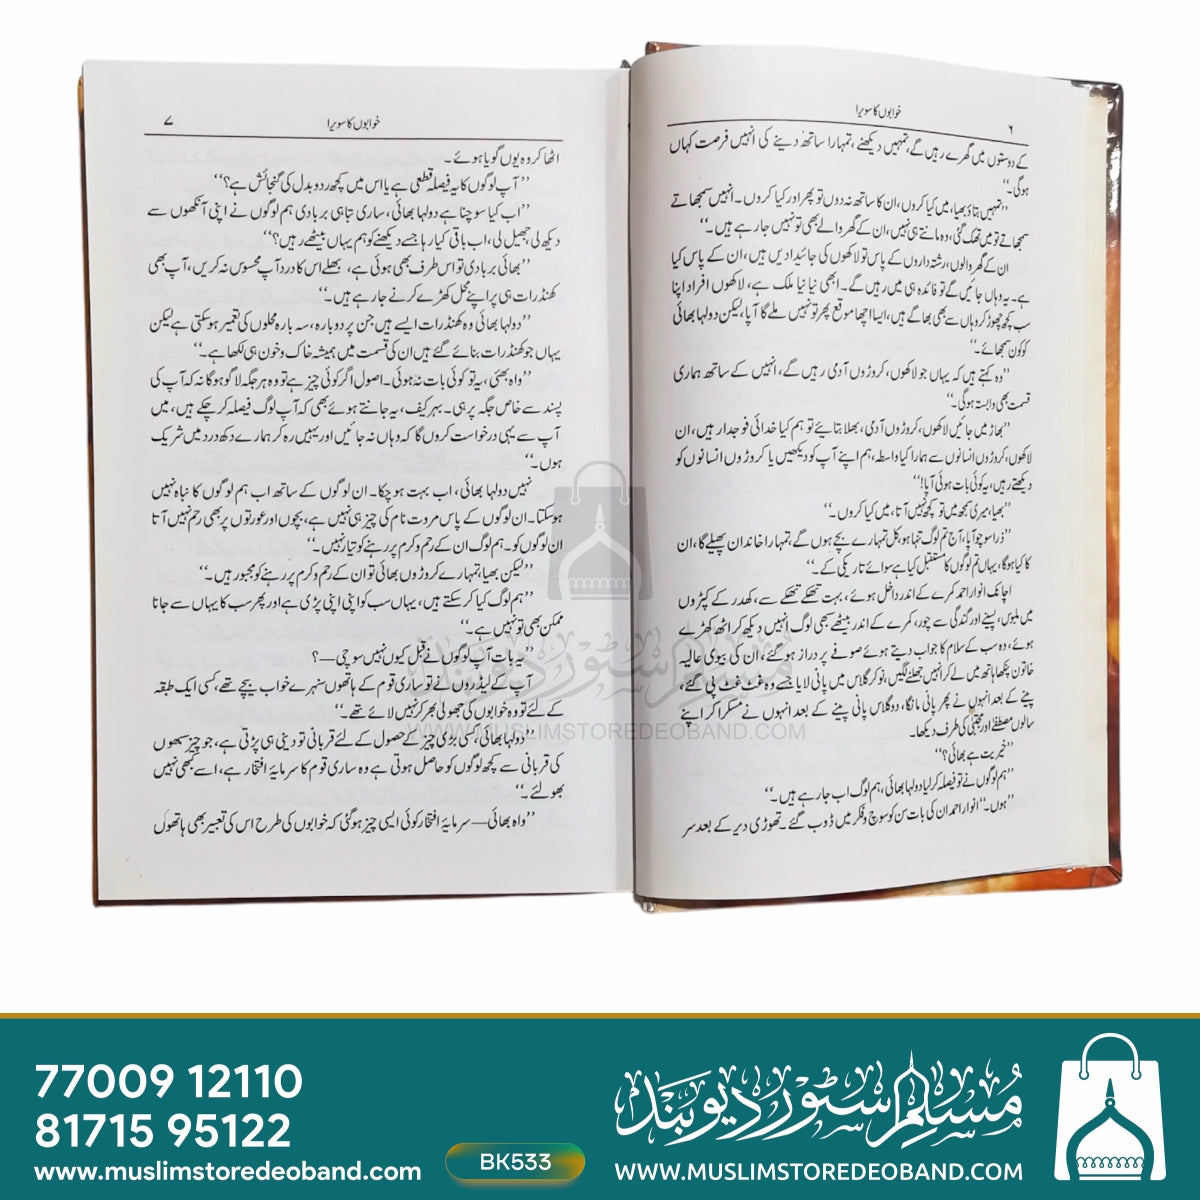 خوابوں کا سویرا
۶
کے دوستوں میں گھرے رہیں گے، تمہیں دیکھنے، تمہارا ساتھ دینے کی انہیں فرصت کہاں
ہوگی۔‘‘
’’تمہیں بتاؤ بھیا، میں کیا کروں، ان کا ساتھ نہ دوں تو پھر اور کیا کروں۔ انہیں سمجھاتے
سمجھاتے تو میں تھک گئی، وہ مانتے ہی نہیں، ان کے گھر والے بھی تو نہیں جا رہے ہیں۔‘‘
ان کے گھر والوں، رشتہ داروں کے پاس تو لاکھوں کی جائیدادیں ہیں، ان کے پاس کیا
ہے۔ یہ وہاں جائیں گے تو فائدہ ہی میں رہیں گے۔ ابھی نیا نیا ملک ہے، لاکھوں افراد اپنا
سب کچھ چھوڑ کر وہاں سے بھی بھاگے ہیں، ایسا اچھا موقع پھر تو نہیں ملے گا آپا، لیکن دولہا بھائی
کو کون سمجھائے۔‘‘
’’وہ کہتے ہیں کہ یہاں جو لاکھوں، کروڑوں آدمی رہیں گے، انہیں کے ساتھ ہماری
قسمت بھی وابستہ ہوگی۔‘‘
’’بھاڑ میں جائیں لاکھوں، کروڑوں آدمی، بھلا بتائیے تو ہم کیا خدائی فوجدار ہیں، ان
لاکھوں، کروڑوں انسانوں سے ہمارا کیا واسطہ، ہم اپنے آپ کو دیکھیں یا کروڑوں انسانوں کو
دیکھتے رہیں، یہ کوئی بات ہوئی آپا!‘‘
’’بھیا، میری سمجھ میں تو کچھ نہیں آتا، میں کیا کروں۔‘‘
’’ذرا سوچو آپا، آج تم لوگ تنہا ہو، کل تمہارے بچے ہوں گے، تمہارا خاندان پھیلے گا، ان
کا کیا ہوگا، یہاں تم لوگوں کا مستقبل کیا ہے سوائے تاریکی کے۔‘‘
اچانک انوار احمد کمرے کے اندر داخل ہوئے، بہت تھکے تھکے سے، کھدر کے کپڑوں
میں ملبوس، پسینے اور گندگی سے چور، کمرے کے اندر بیٹھے سبھی لوگ انہیں دیکھ کر اٹھ کھڑے
ہوئے، وہ سب کے سلام کا جواب دیتے ہوئے صوفے پر دراز ہو گئے، ان کی بیوی عالیہ
خاتون پنکھا ہاتھ میں لے کر انہیں جھلنے لگیں، نوکر گلاس میں پانی لایا جسے وہ غٹ غٹ پی گئے،
پینے کے بعد انہوں نے پھر پانی مانگا، دو گلاس پانی پینے کے بعد انہوں نے مسکرا کر اپنے
سالوں مصطفےٰ اور مجتبیٰ کی طرف دیکھا۔
’’خیریت ہے بھائی؟‘‘
’’ہم لوگوں نے تو فیصلہ کر لیا دولہا بھائی، ہم لوگ اب جا رہے ہیں۔‘‘
’’ہوں۔‘‘ انوار احمد ان کی بات سن کو سوچ و فکر میں ڈوب گئے۔ تھوڑی دیر کے بعد سر
خوابوں کا سویرا
۷
اٹھا کر وہ یوں گویا ہوئے۔
’’آپ لوگوں کا یہ فیصلہ قطعی ہے یا اس میں کچھ ردو بدل کی گنجائش ہے؟‘‘
’’اب کیا سوچنا ہے دولہا بھائی، ساری تباہی بربادی ہم لوگوں نے اپنی آنکھوں سے
دیکھ لی، جھیل لی، اب باقی کیا رہا جسے دیکھنے کو ہم یہاں بیٹھے رہیں؟‘‘
’’بھائی بربادی تو اس طرف بھی ہوئی ہے، بھلے اس کا درد آپ محسوس نہ کریں، آپ بھی
کھنڈرات ہی پر اپنے محل کھڑے کرنے جا رہے ہیں۔‘‘
’’دولہا بھائی وہ کھنڈرات ایسے ہیں جن پر دوبارہ، سہ بارہ محلوں کی تعمیر ہو سکتی ہے لیکن
یہاں جو کھنڈرات بنائے گئے ہیں ان کی قسمت میں ہمیشہ خاک و خون ہی لکھا ہے۔‘‘
’’واہ بھئی، یہ تو کوئی بات نہ ہوئی۔ اصول اگر کوئی چیز ہے تو وہ ہر جگہ لاگو ہوگا نہ کہ آپ کی
پسند سے خاص جگہ پر ہی۔ بہر کیف، یہ جانتے ہوئے بھی کہ آپ لوگ فیصلہ کر چکے ہیں، میں
آپ سے یہی درخواست کروں گا کہ وہاں نہ جائیں اور یہیں رہ کر ہمارے دکھ درد میں شریک
ہوں۔‘‘
نہیں دولہا بھائی، اب بہت ہو چکا۔ ان لوگوں کے ساتھ اب ہم لوگوں کا نباہ نہیں
ہو سکتا۔ ان لوگوں کے پاس مروت نام کی چیز ہی نہیں ہے، بچوں اور عورتوں پر بھی رحم نہیں آتا
ان لوگوں کو۔ ہم لوگ ان کے رحم و کرم پر رہنے کو تیار نہیں۔‘‘
’’لیکن بھیا، تمہارے کروڑوں بھائی تو ان کے رحم و کرم پر رہنے کو مجبور ہیں۔‘‘
’’ہم لوگ کیا کر سکتے ہیں، یہاں سب کو اپنی اپنی پڑی ہے اور پھر سب کا یہاں سے جانا
ممکن بھی تو نہیں ہے۔‘‘
’’یہ بات آپ لوگوں نے قبل کیوں نہیں سوچی—؟
آپ کے لیڈروں نے تو ساری قوم کے ہاتھوں سنہرے خواب بیچے تھے، کسی ایک طبقہ
کے لئے تو وہ خوابوں کی جھولی بھر کر نہیں لائے تھے۔‘‘
’’دولہا بھائی، کسی بڑی چیز کے حصول کے لئے قربانی تو دینی ہی پڑتی ہے، جو چیز سبھوں
کی قربانی سے کچھ لوگوں کو حاصل ہوتی ہے وہ ساری قوم کا سرمایۂ افتخار ہے، اسے کبھی نہیں
بھولئے۔‘‘
’’واہ بھائی— سرمایۂ افتخار کوئی ایسی چیز ہوگئی کہ خوابوں کی طرح اس کی تعبیر بھی ہاتھوں
مسلم سٹور دیوبند
WWW.MUSLIMSTOREDEOBAND.COM
77009 12110
81715 95122
www.muslimstoredeoband.com
BK533
مسلم سٹور دیوبند
WWW.MUSLIMSTOREDEOBAND.COM